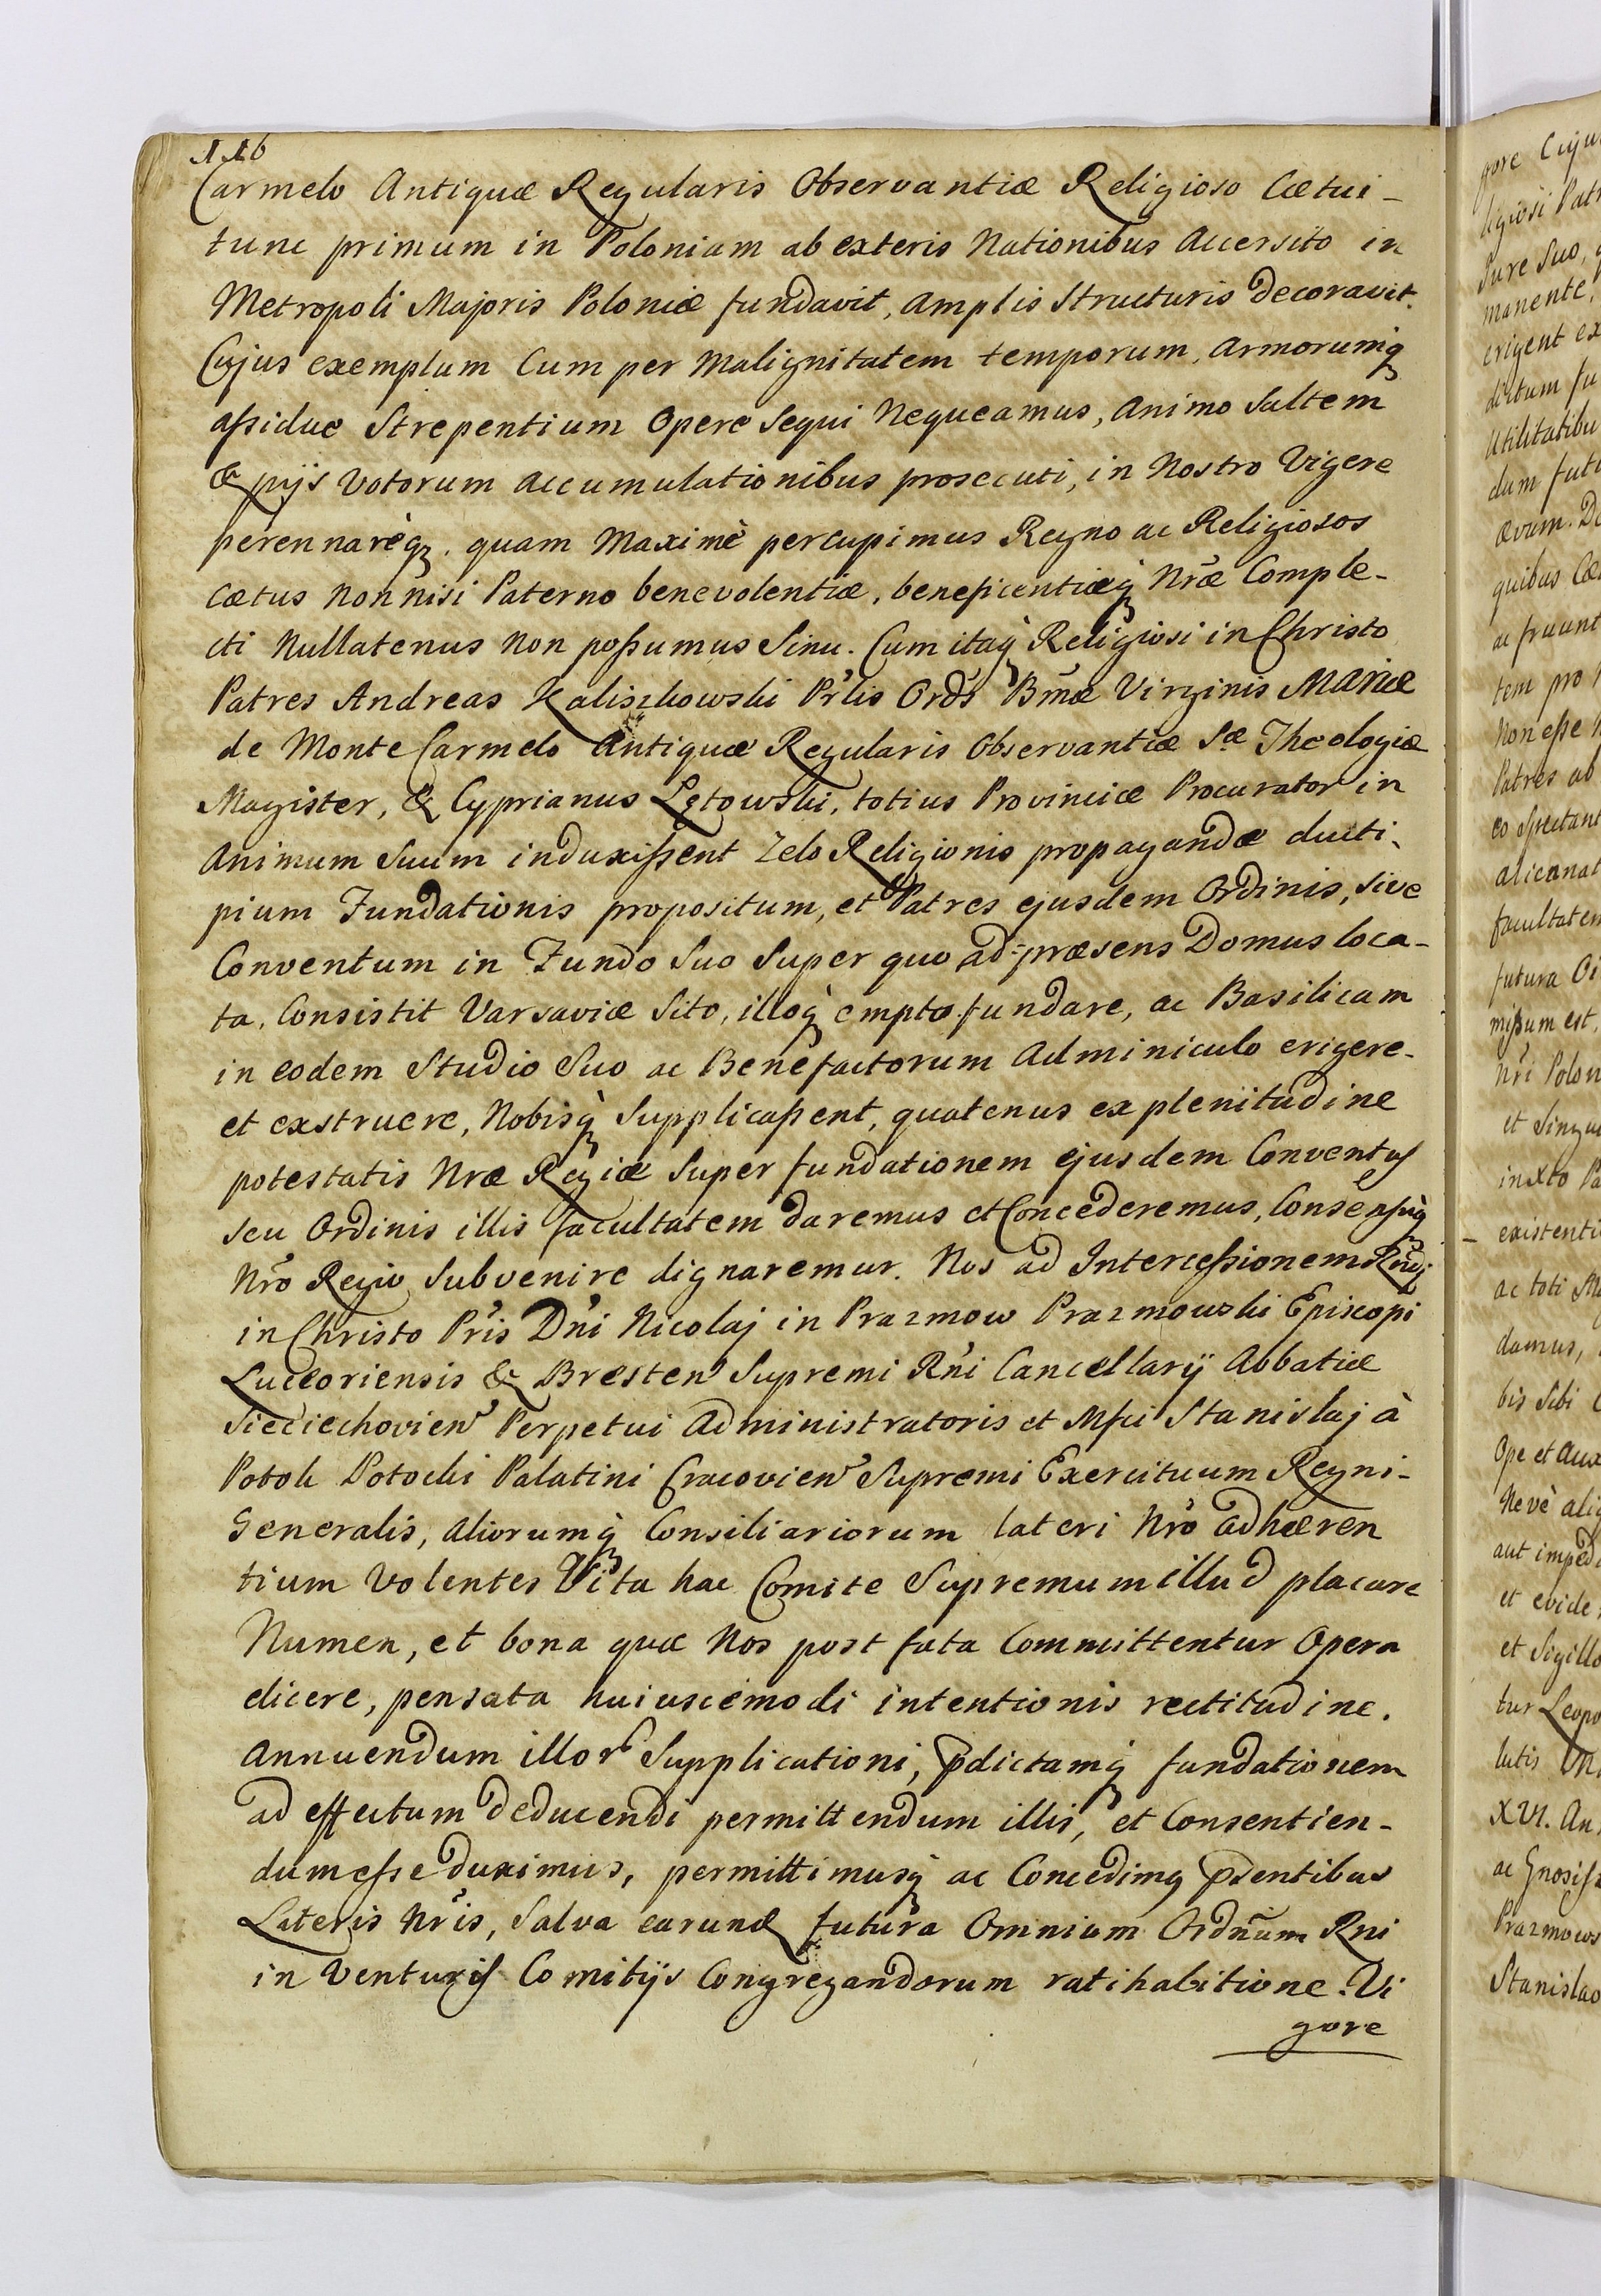 116
Carmelo Antiquæ Regularis Observantiæ Religioso Cœtui -
tunc primum in Poloniam ab exteris Nationibus Accersito in
Metropoli Majoris Poloniæ fundavit, Amplis Structuris decoravit.
Cujus exemplum Cum per Malignitatem temporum, Armorumq̨
aſsidue Strepentium Opere Sequi Nequeamus, Animo Saltem
& pijs Votorum Accumulationibus prosecuti, in Nostro Vigere
perennarèq̨, quam Maximè percupimus Regno ac Religiosos
Cœtus Nonnisi Paterno benevolentiæ, beneficentiæq̨ Nr̃æ Comple-
cti Nullatenus Non poſsumus Sinu. Cum itaq̨ Religiosi in Christo
Patres Andreas Kaliszkowski Pr̃lis Ordǐs Bm̃æ Virginis MARIÆ
de Monte Carmelo Antiquæ Regularis Observantiæ Sæ Theologiæ
Magister, & Cyprianus Lętowski, totius Provinciæ Procurator in
Animum Suum induxiſsent Zelo Religionis propagandæ ducti,
pium Fundationis propositum, et Patres ejusdem Ordinis, sive
Conventum in Fundo Suo Super quo ad præsens Domus loca-
ta, Consistit Varsaviæ Sito, illoq̨ empto fundare, ac Basilicam
in eodem Studio Suo ac Benefactorum Adminiculo erigere-
et exstruere, Nobisq̨ Supplicaſsent, quatenus ex plenitudine
potestatis Nræ Regiæ Super fundationem ejusdem Conventus
seu Ordinis illis facultatem daremus et Concederemus, Consensuq̨
Nr̃o Regio Subvenire dignaremur. Nos ad Interceſsionem Rndi
in Christo Pr̃is Dn̄i Nicolaj in Prazmow Prazmowski Episcopi
Luceoriensis & Bresten̄ Supremi Rn̄i Cancellarij Abbatiæ
Sieciechovien̄ Perpetui Administratoris et Mfci Stanislaj à
Potok Potocki Palatini Cracovien̄ Supremi Exercituum Regni-
Generalis, Aliorumq̨ Consiliariorum lateri Nr̃o adhæren
tium Volentes Vita hac Comite Supremum illud placare
Numen, et bona quæ Nos post fata Committentur Opera
elicere, pensata huiuscemodi intentionis rectitudine.
Annuendum illor̃ Supplicationi, p̄dictamq̨ fundationem
ad effectum deducendi permittendum illis, et Consentien-
dum eſse duximus, permittimusq̨ ac Concedimꝯ p̄sentibus
Literis Nr̃is, Salva earund futura Omnium Ordin̄um Rni
in Venturis Comitijs Congregandorum ratihabitione. Vi
gore